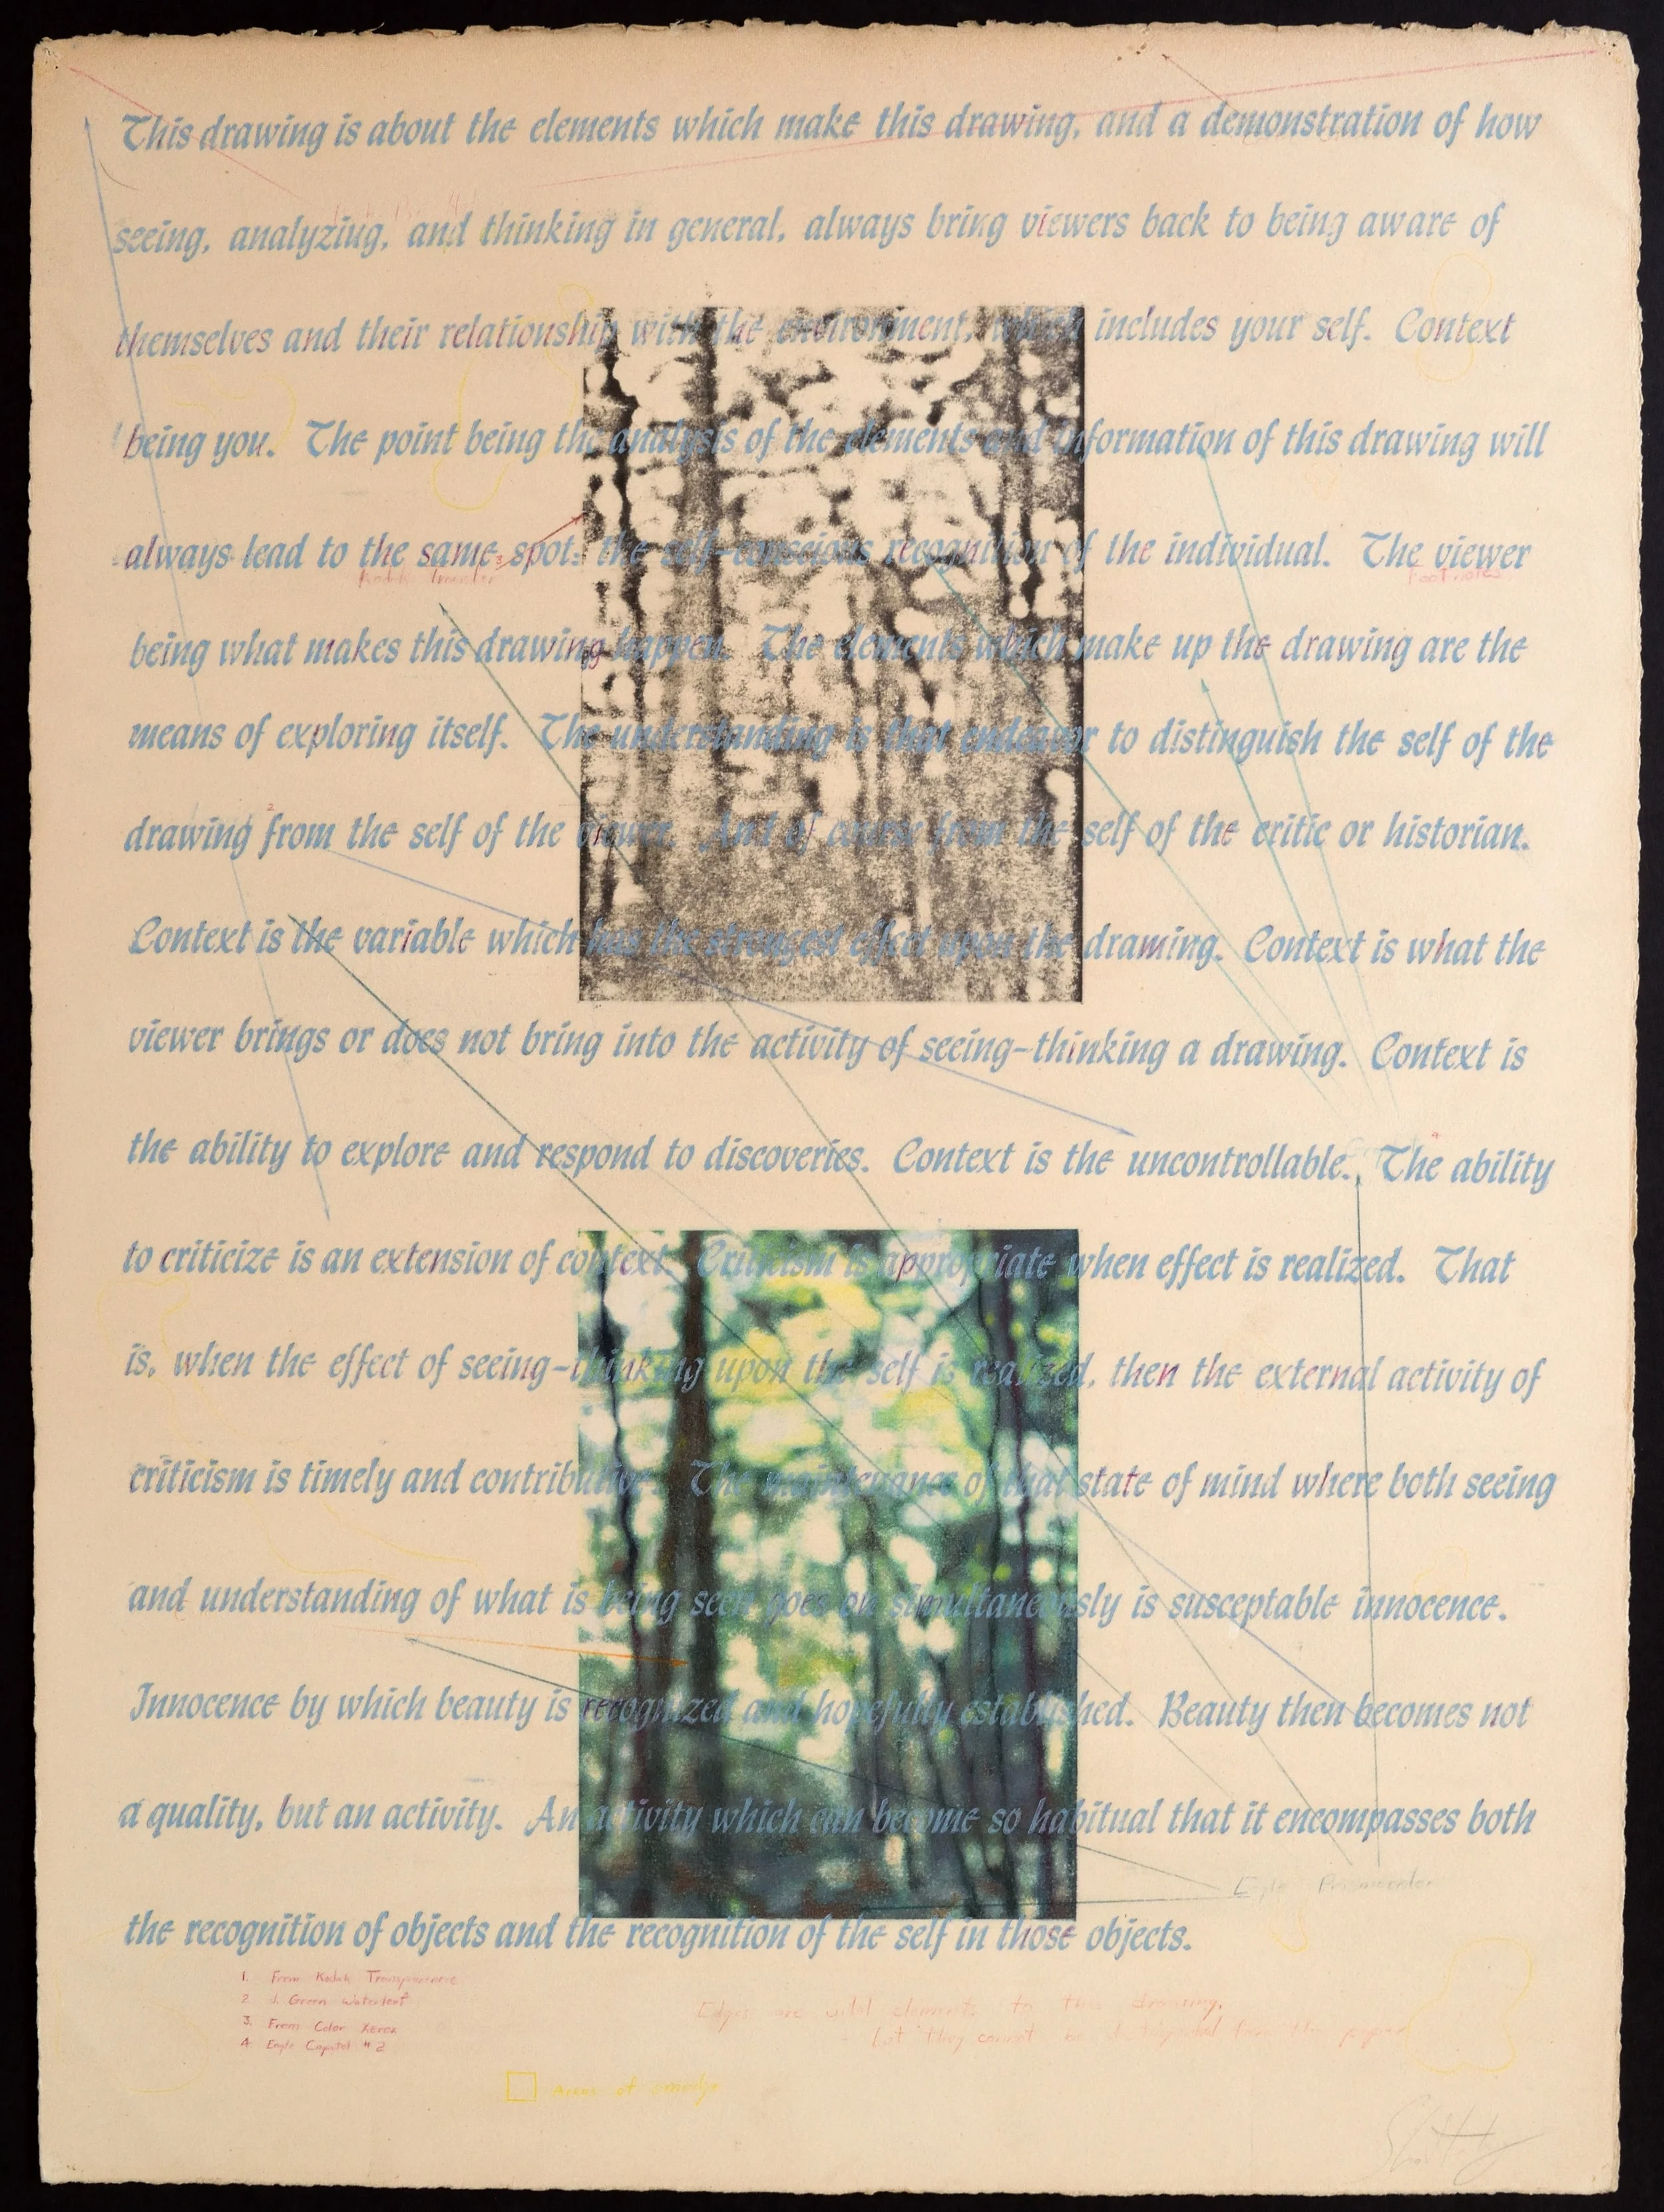 This drawing is about the elements which make this drawing, and a demonstration of how
seeing, analyzing, and thinking in general, always bring viewers back to being aware of
themselves and their relationship with the environment, which includes your self. Context
being you. The point being the analysis of the elements and information of this drawing will
always lead to the same spot: the self-conscious recognition of the individual. The viewer
Kodak Transfer
Footnotes
being what makes this drawing happen. The elements which make up the drawing are the
means of exploring itself. The understanding is that endeavor to distinguish the self of the
2
drawing from the self of the viewer. And of course from the self of the critic or historian.
Context is the variable which has the strongest effect upon the draming. Context is what the
viewer brings or does not bring into the activity of seeing-thinking a drawing. Context is
the ability to explore and respond to discoveries. Context is the uncontrollable. The ability
to criticize is an extension of context. Criticism is appropriate when effect is realized. That
is, when the effect of seeing-thinking upon the self is realized, then the external activity of
criticism is timely and contributive. The maintenance of that state of mind where both seeing
and understanding of what is being seen goes on simultaneously is susceptable innocence.
Innocence by which beauty is recognized and hopefully established. Beauty then becomes not
a quality, but an activity. An activity which can become so habitual that it encompasses both
Eagle Prismacolor
the recognition of objects and the recognition of the self in those objects.
1. From Kodak
2 J. Green Waterleaf
3. From Color Xerox
4 Eagle Capitol #2
Edges are wild elements to this drawing,
but they cannot be from the paper
Areas of smudge